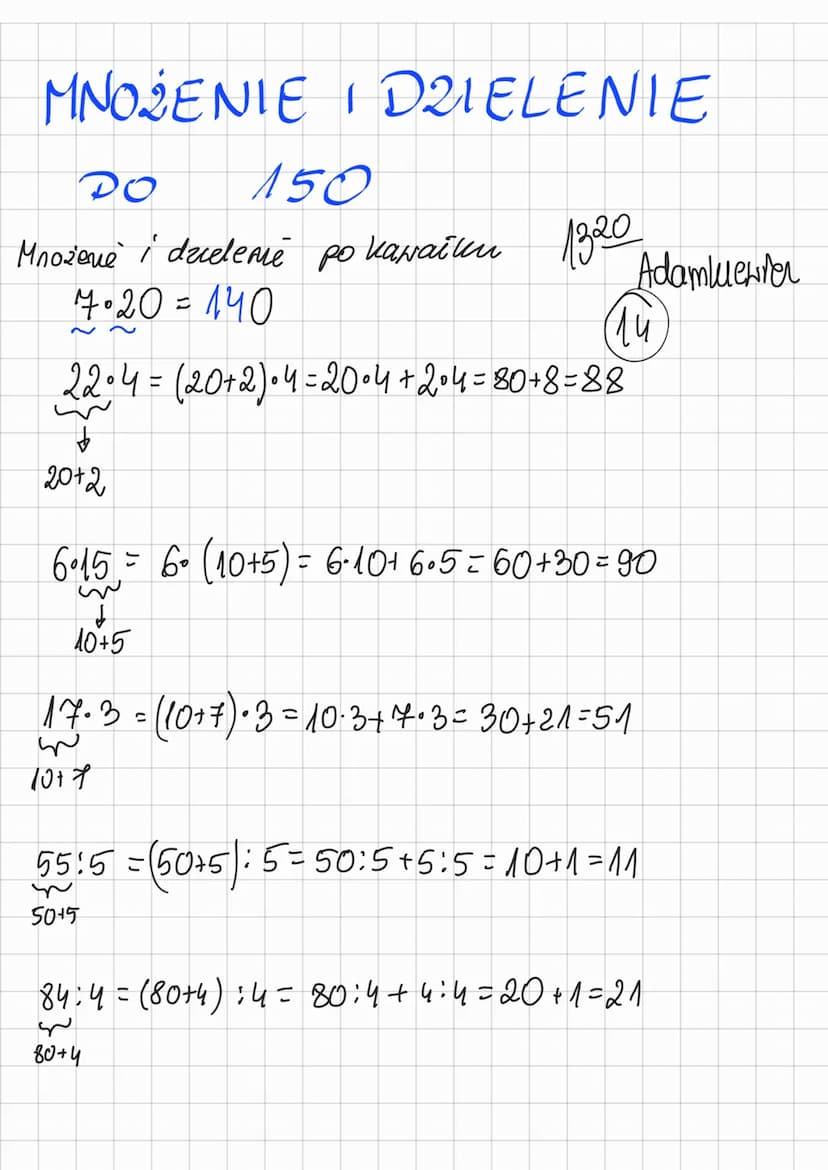 MNOŻENIE I DZIELENIE
DO 150
Mnożenie i dzielenie po kawałku
13 20
Adamkiewicz
7·20 = 140
14
22·4 = (20+2)·4 = 20·4 + 2·4 = 80+8 = 88
20+2
6·15 = 6·(10+5) = 6·10+ 6·5 = 60+30 = 90
10+5
17·3 = (10+7)·3 = 10·3+7·3 = 30+21 = 51
10+7
55:5 = (50+5):5 = 50:5+5:5 = 10+1 = 11
50+5
84:4 = (80+4):4 = 80:4 + 4:4 = 20+1 = 21
80+4